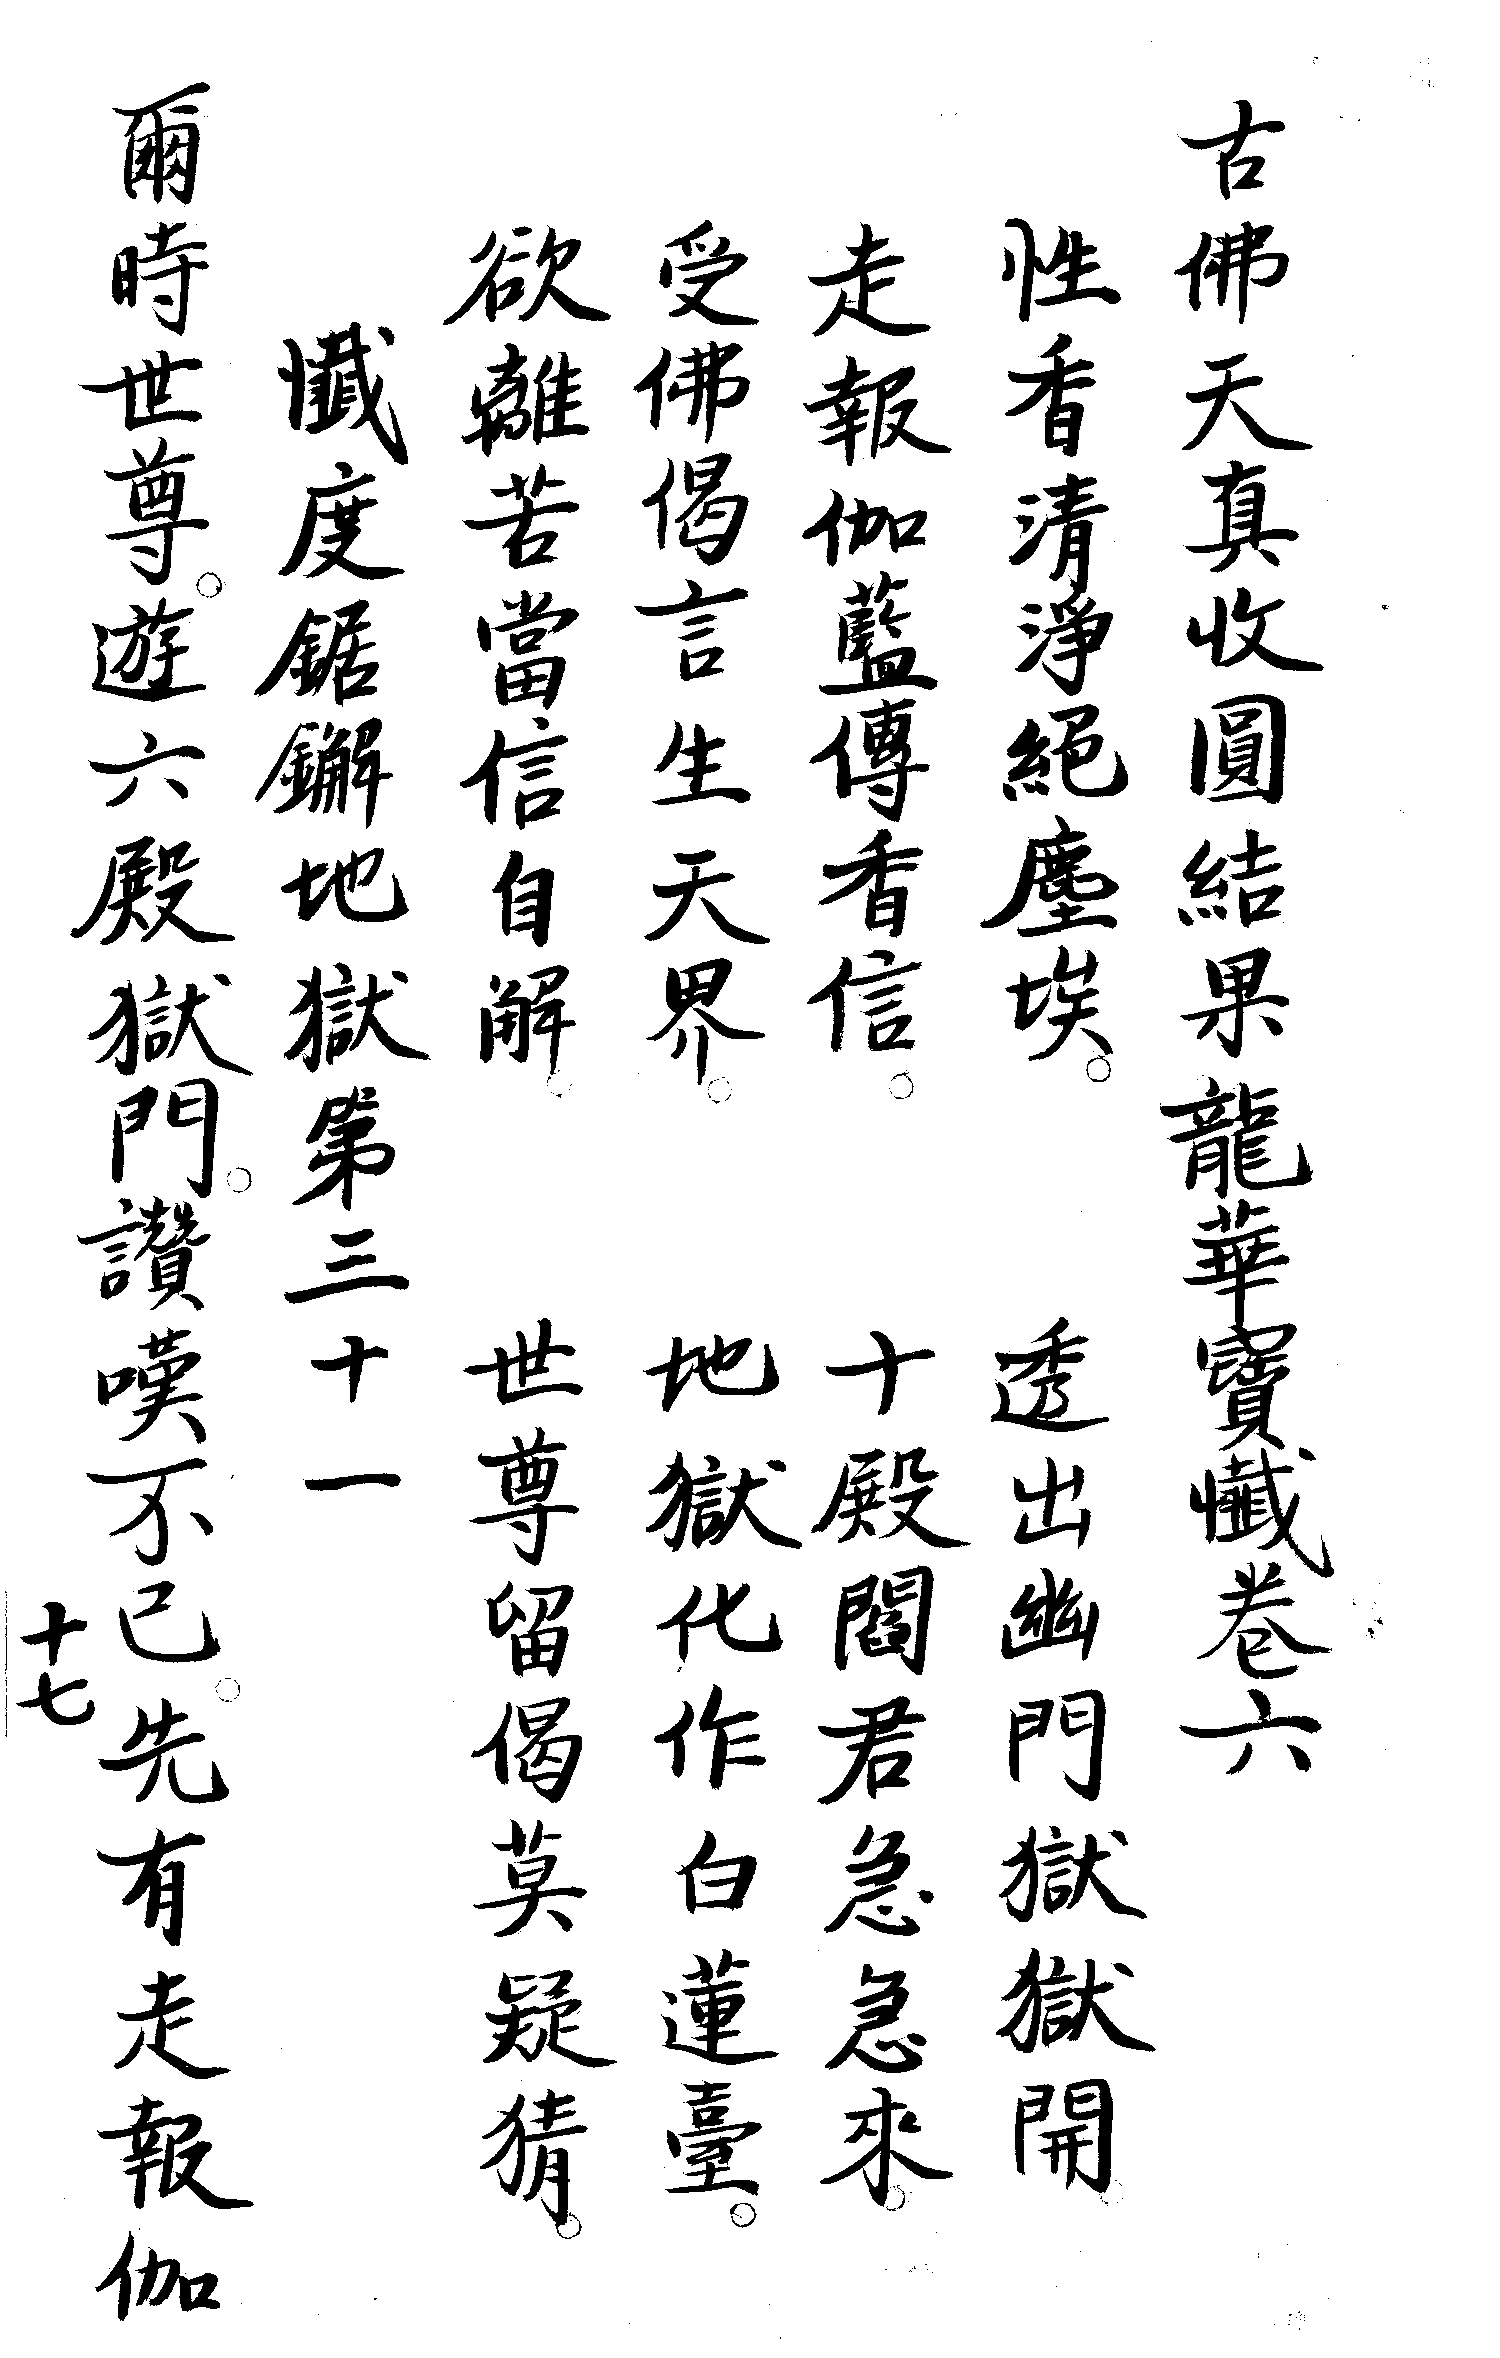 古佛天真收圓結果龍華寶懺卷六
性香清淨絕塵埃。 透出幽門獄獄開。
走報伽藍傳香信。 十殿閻君急急來。
受佛偈言生天界。 地獄化作白蓮臺。
欲離苦當信自解。 世尊留偈莫疑猜。
懺度鋸獬地獄第三十一
爾時世尊。遊六殿獄門。讚嘆不已。先有走報伽
十七